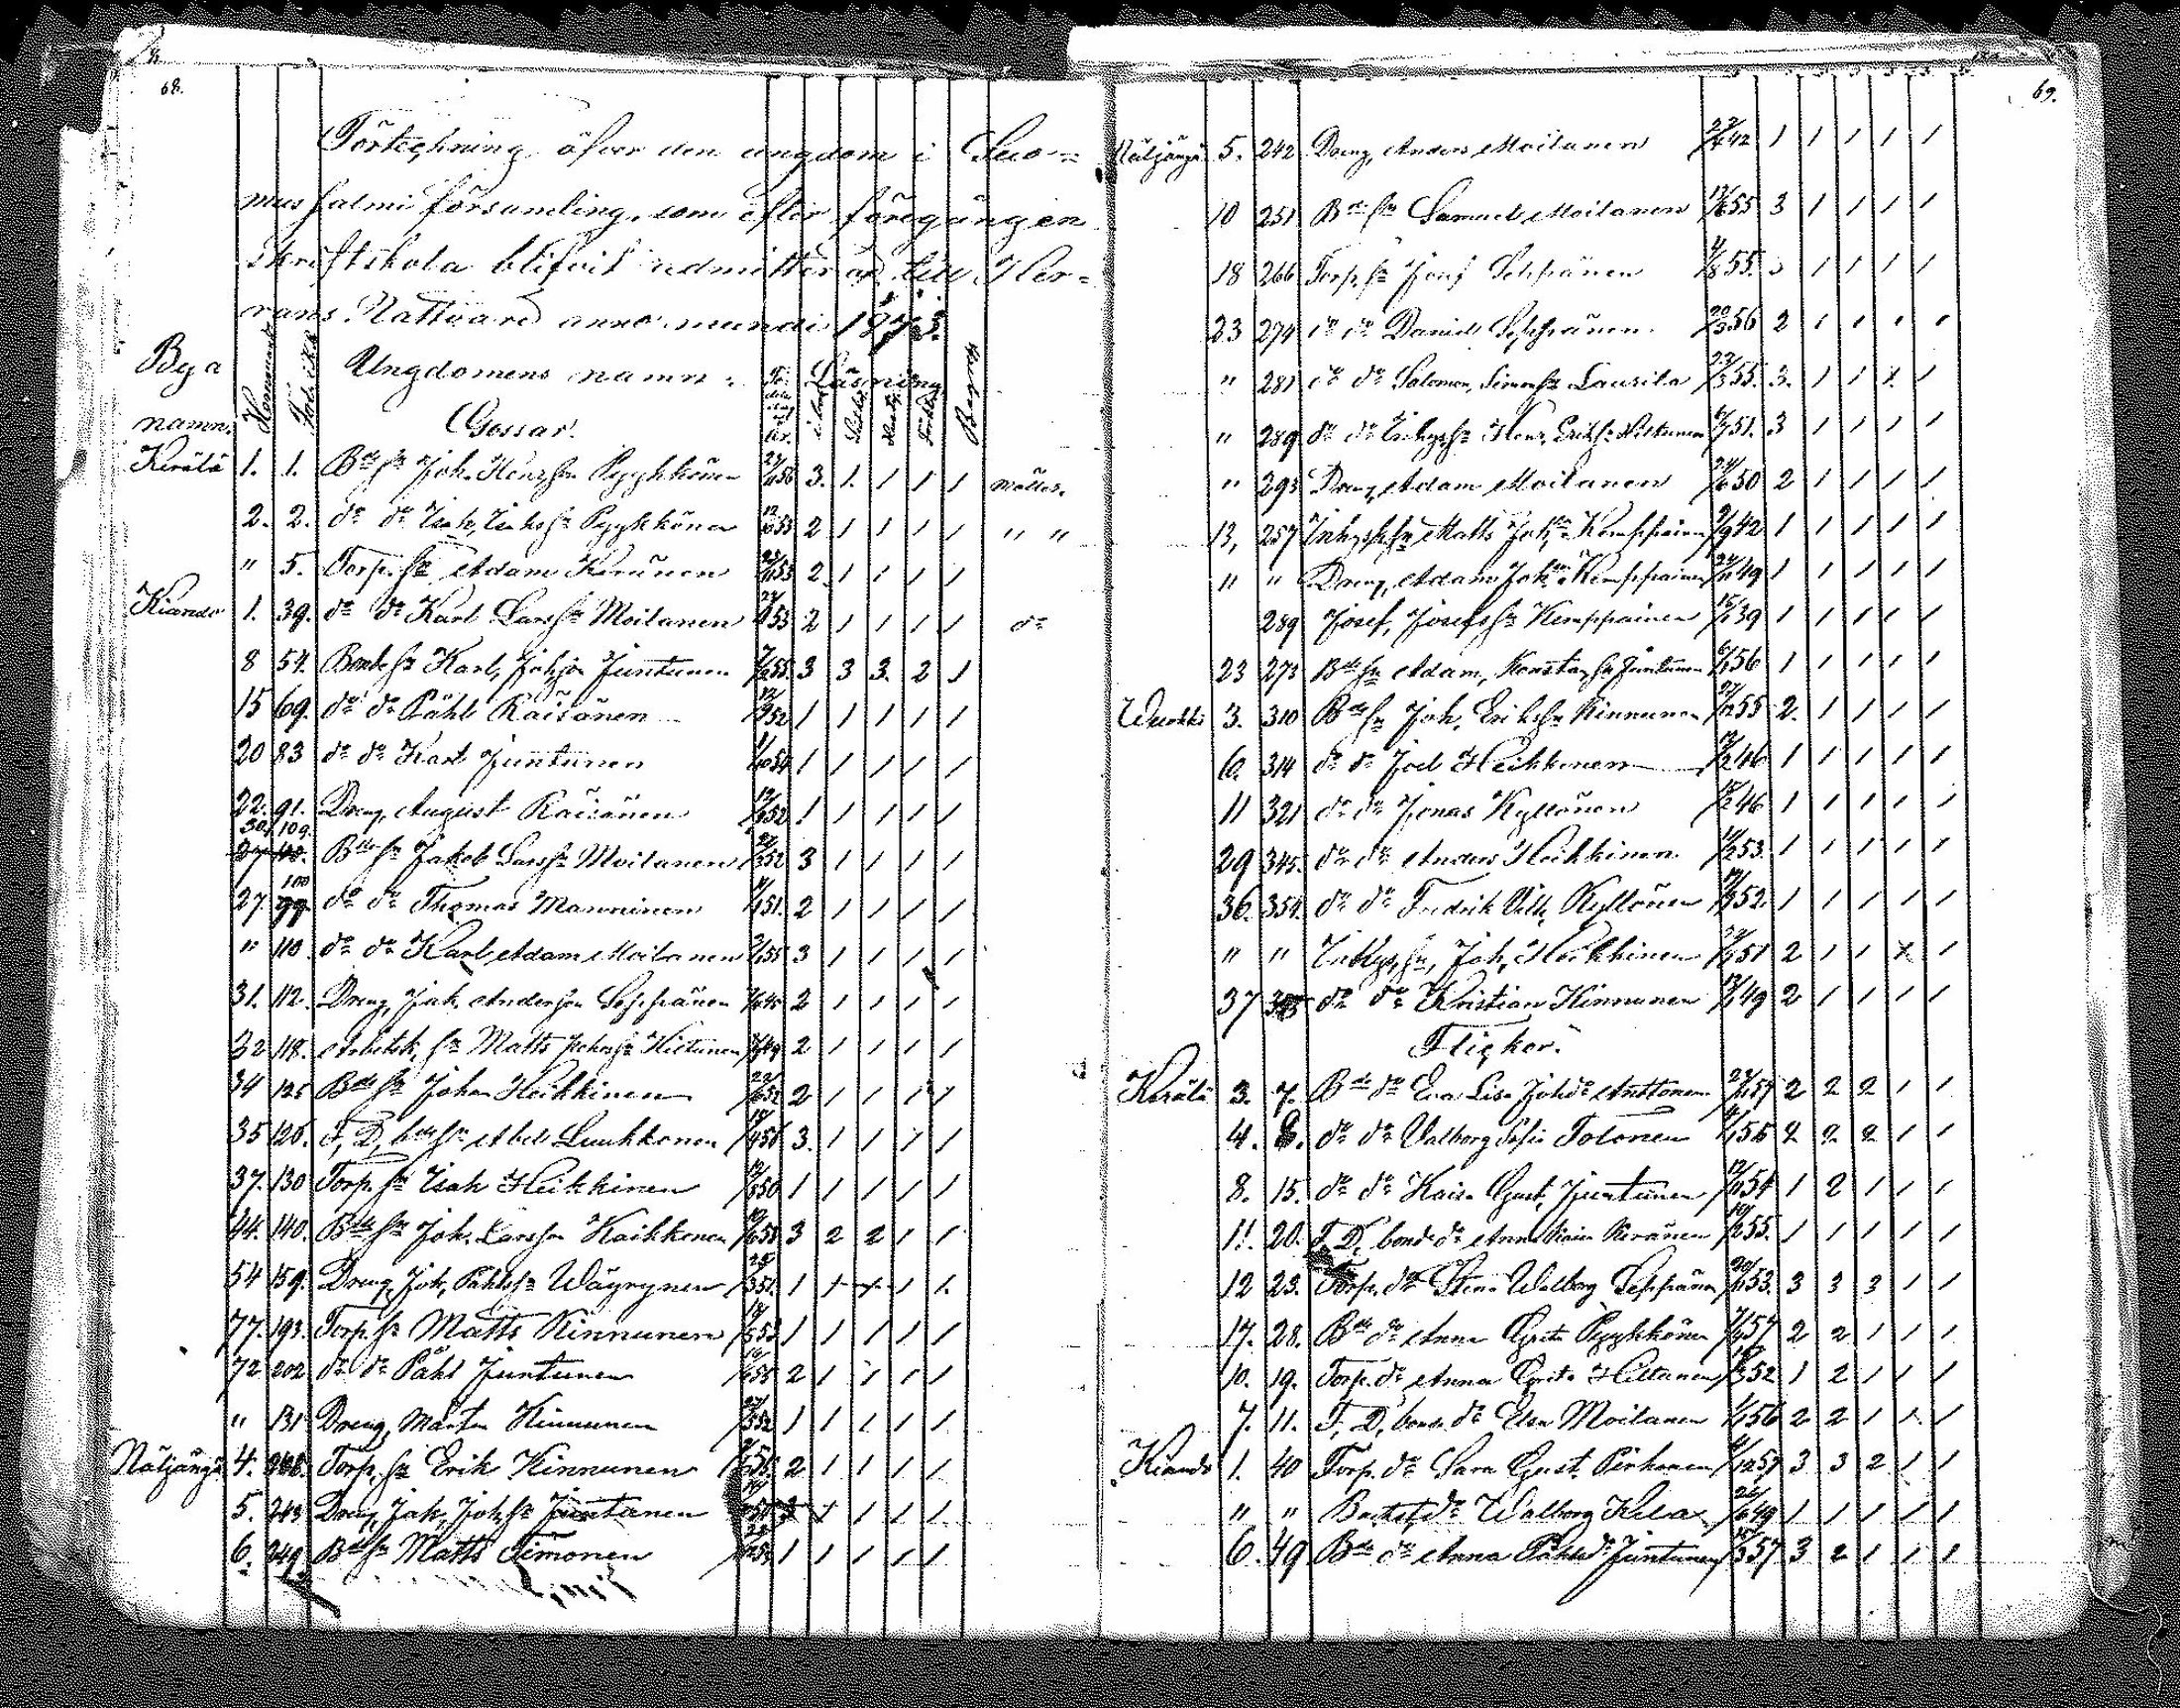 68.
Förteckning öfver den ungdom i Suo=
mussalmi församling, som efter föregången
skriftskola blifvit admitterad till Her=
rans Nattvard anno mundi 1873.
Bya namn. Hemmants Ungdomens namn: Läsning Begrep
Gossar.
Kerälä 1. 1. Bde sn Joh. Henrsson Pyykkönen 56 3. 1. 1 1 1
2. 2. do do Isak, Isakssn Pyykkönen 53 2 1 1 1 1 " "
" 5. Torp. sn Adam Keränen 53 2 1 1 1 1
Kiando 1. 39. do do Karl Larssn Moilanen 53 2 1 1 1 1 do
8 54. Bonde sn Karl, Johsson Juntunen 55 3 3 3. 2 1
15 69. do do Påhl Räisänen 52 1 1 1 1 1
20 83 do do Karl Juntunen 54 1 1 1 1 1
22. 91. Dreng, August Räisänen 52 1 1 1 1 1
30. 109. Bde sn Jakob Larssn Moilanen 52 3 1 1 1 1
27. 100 do do Thomas Manninen 51. 2 1 1 1 1
" 110. do do Karl Adam Moilanen 55 3 1 1 1 1
31. 112. Dreng, Joh. Andersson Seppänen 2 1 1 1 1
32 118. Arbetsk. sn Matts Hiltunen 49 2 1 1 1 1
34 125 Bde sn Johan Heikkinen 52 2 1 1 1 1
35 126. F, D, bde sn Abel Luukkonen 56 3. 1 1 1 1
37. 130 Torp. sn Isak Heikkinen 50 1 1 1 1 1
44. 140. Bde sn Joh. Larsson Kaikkonen 3 2 2 1 1
54 159. Dreng, Joh, Påhlssn Wäyrynen 51. 1 + + 1 1.
77. 193. Torp. sn Matts Kinnunen 53 1 1 1 1 1
72 202 do do Påhl Juntunen 55 2 1 1 1 1
" 131 Dreng, Mårten Kinnunen 52 1 1 1 1 1
Näljängä 4. Torp. sn Erik Kinnunen 2 1 1 1 1
5. 243 Dreng, Joh, Johssn Juntunen
6. 249. Bde sn Matts Timonen 1 1 1 1 1
69.
Näljängä 5. 242 Dreng, Anders Moilanen 42 1 1 1 1 1
10 251 Bde sn Samuel Moilanen 55 3 1 1 1 1
18 266 Torp. sn Josef Seppänen 55. 3 1 1 1 1
23 274 do do Daniel Seppänen 56 2 1 1 1 1
" 281 do do Salomon, Simonssn Laurila 55. 3. 1 1 1 1
" 289. do do 51. 3 1 1 1 1
" 293 Dreng, Adam Moilanen 50 2 1 1 1 1
13, 257 Inhyss sn Matts Johssn Kemppainen 42 1 1 1 1 1
" " Dreng, Adam Johssn Kemppainen 49 1 1 1 1 1
289 Josef, Josefssn Kemppainen 39 1 1 1 1 1
23 273 Bde sn Adam, Konstanssn Juntunen 56 1 1 1 1 1
Wuokki 3. 310 Bde sn Joh, Erikssn Kinnunen 55 2. 1 1 1 1
6. 314 do do Joel Heikkinen 46 1 1 1 1 1
11 321 do do Jonas Kyllönen 46 1 1 1 1 1
29 345. do do Anders Heikkinen 53. 1 1 1 1 1
36. 354. do do Fredrik Vilh. Kyllönen 52 1 1 1 1 1
" " Inhys, sn, Joh, Heikkinen 51 2 1 1 X 1
37 do do Kristian Kinnunen 49 2 1 1 1 1
Flickor.
Kerälä 3. 7. Bde dr Eva Lisa Johdr Anttonen 57 2 2 2 1 1
4. 8. do do Valborg Sofia Tolonen 56 2 2 2 1 1
8. 15. do do Kaisa Gust. Juntunen 54 1 2 1 1 1
11. 20. F. D. bonde dr Anna Kaisa Keränen 55. 1 1 1 1 1
12 23. Torp. dr Stina Walborg Seppänen 53. 3 3 3 1 1
17. 28. Bde dr Anna Greta Pyykkönen 57 2 2 1 1 1
10. 19. Torp. dr Anna Greta Hiltunen 52 1 2 1 1 1
7. 11. F, D, bonde dr Elsa Moilanen 56 2 2 1 1 1
Kiando 1. 40 Torp. dr Sara Gust. Pirhonen 57 3 3 2 1 1
" " Backst, dr Walborg Kela 49 1 1 1 1 1
6. 49 Bde dr Anna Påhlsdr Juntunen 57 3 2 1 1 1